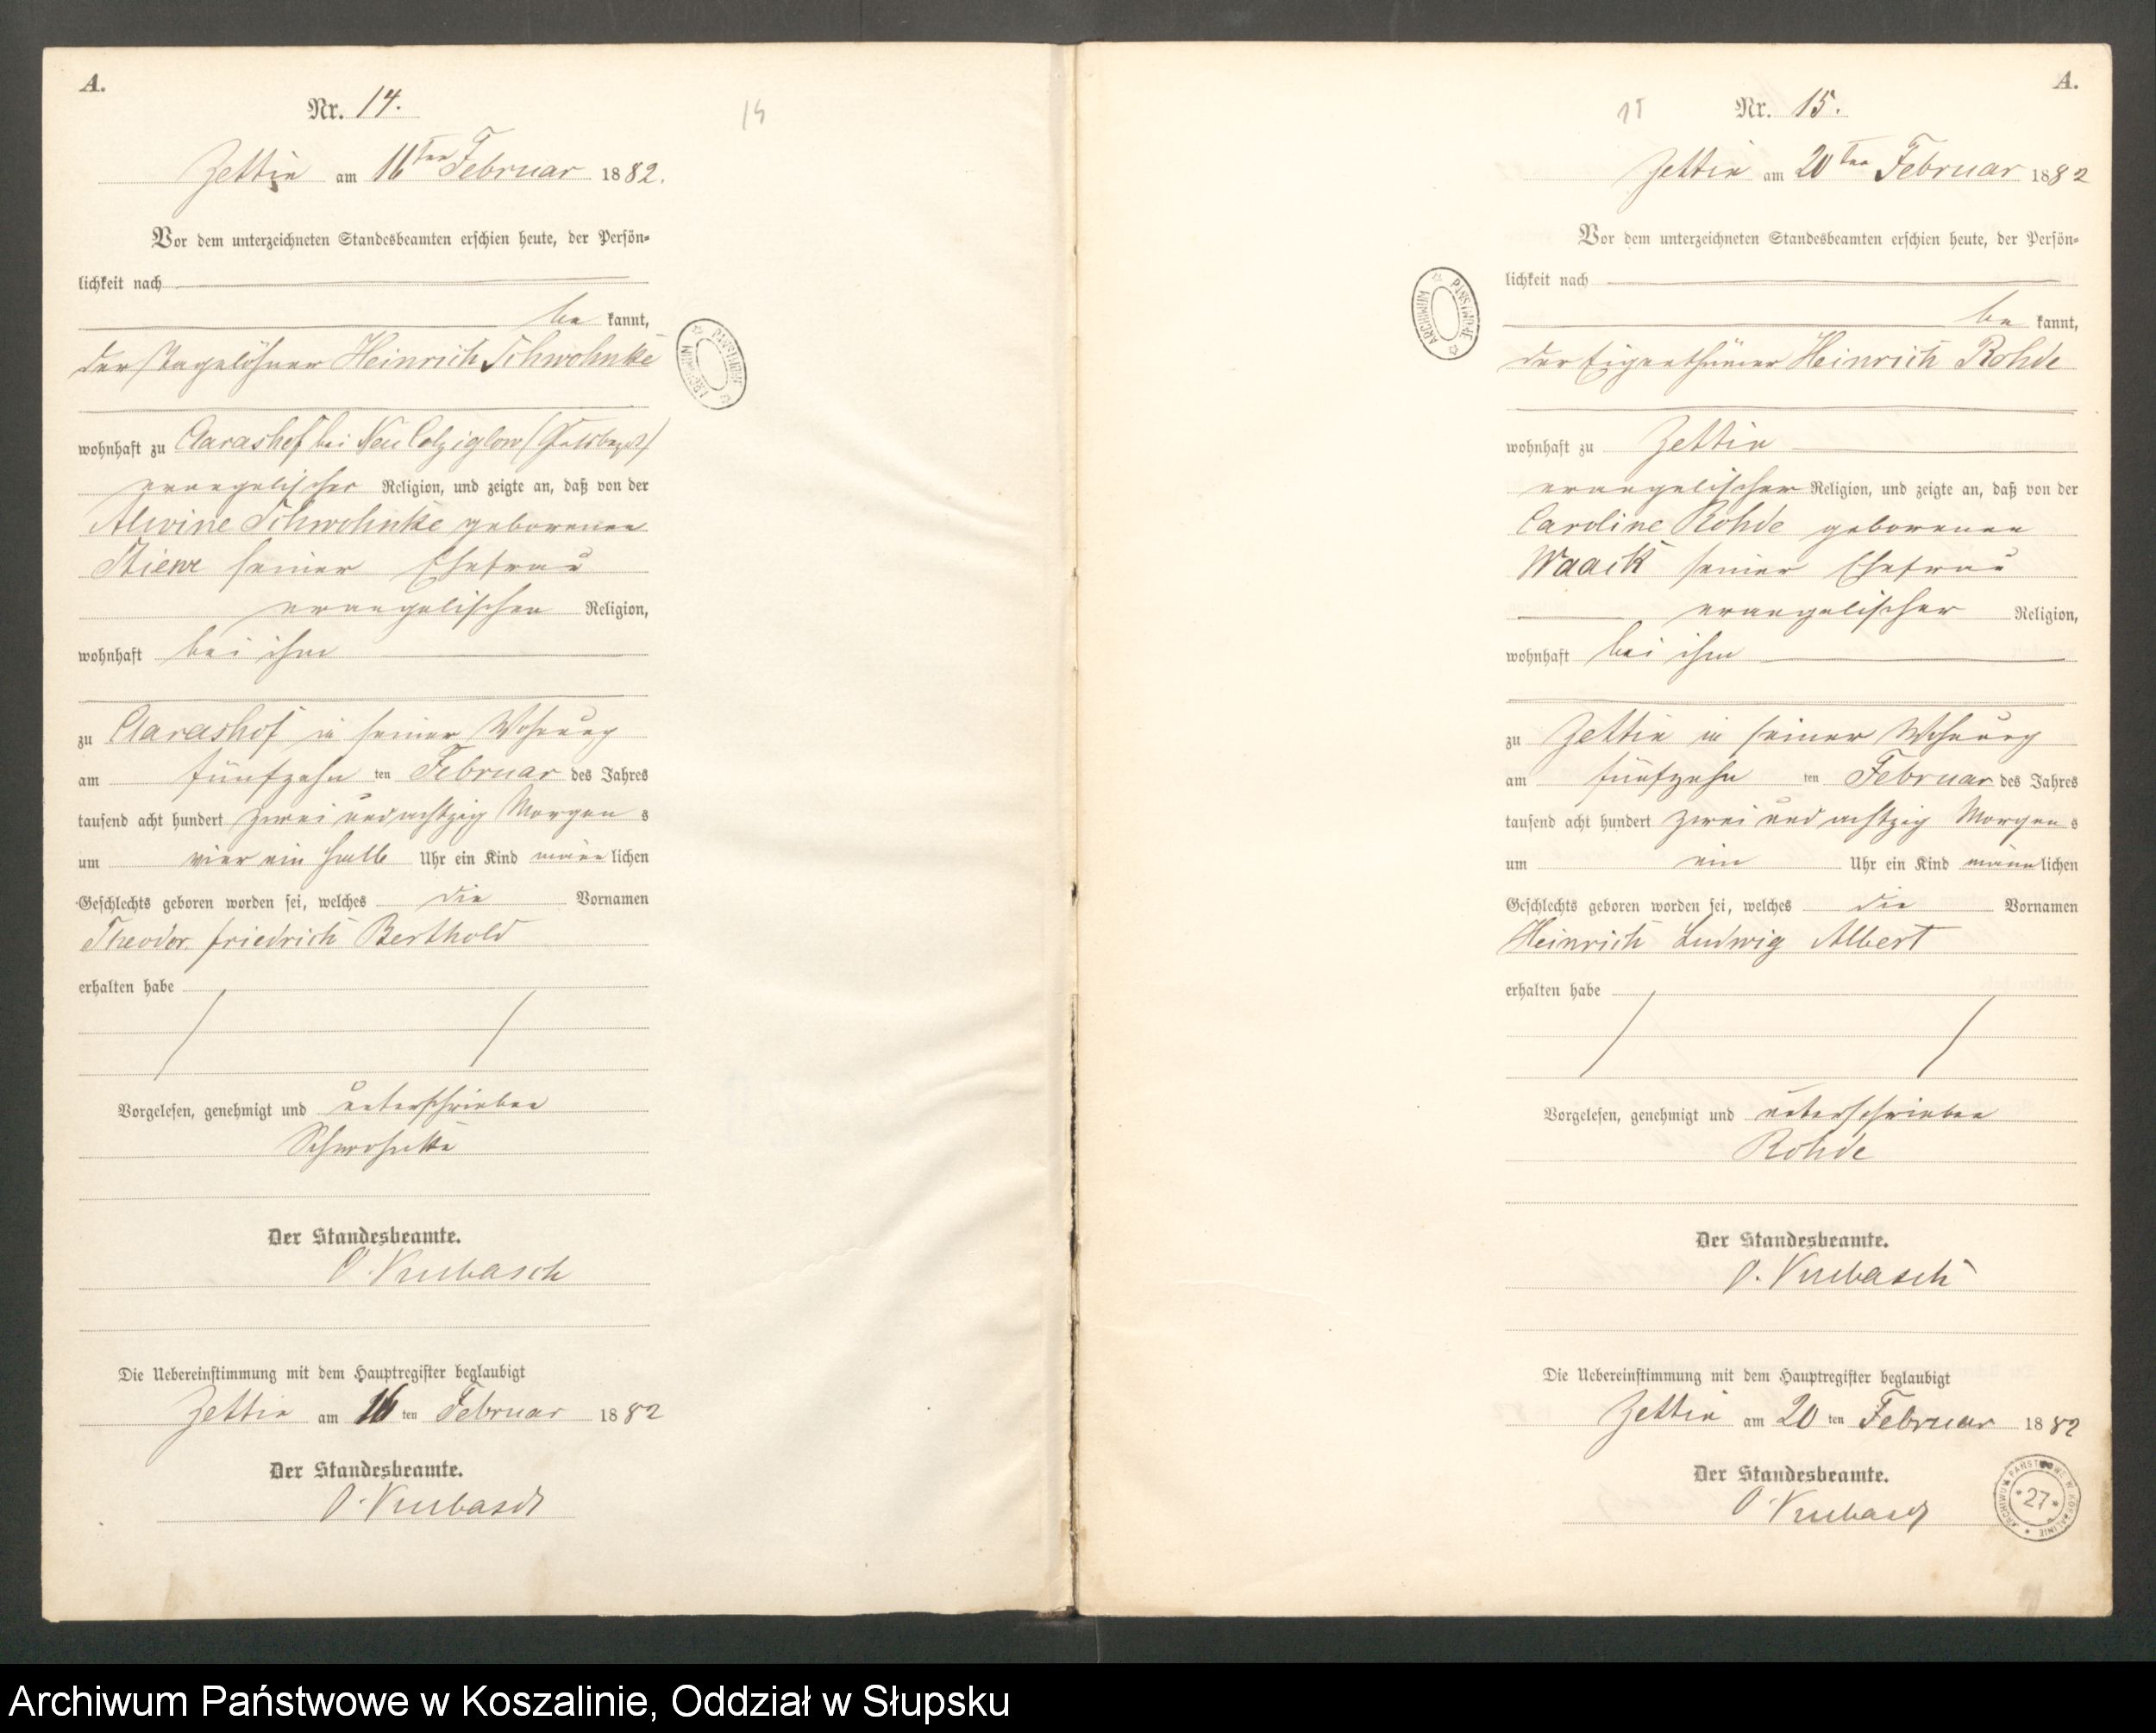 A.
Nr. 14.
14
Zettin am 16ten Februar 1882.
Vor dem unterzeichneten Standesbeamten erschien heute, der Persön-
lichkeit nach
be kannt,
der Tagelöhner Heinrich Schwohnke
wohnhaft zu Clarashof bei Neu Colziglow (Gutsbezirk)
evangelischer Religion, und zeigte an, daß von der
Alwine Schwohnke geborenen
seiner Ehefrau
evangelischen Religion,
wohnhaft bei ihm
zu Clarashof in seiner Wohnung
am fünfzehn ten Februar des Jahres
tausend acht hundert zwei und achtzig Morgen s
um vier ein halb Uhr ein Kind männ lichen
Geschlechts geboren worden sei, welches die Vornamen
Theodor Friedrich Berthold
erhalten habe
Vorgelesen, genehmigt und unterschrieben
Schwohnke
Der Standesbeamte.
O. Krubasch
Die Uebereinstimmung mit dem Hauptregister beglaubigt
Zettin am 16 ten Februar 1882
Der Standesbeamte.
O. Krubasch
ARCHIWUM PAŃSTWOWE
A.
15
Nr. 15.
Zettin am 20ten Februar 1882
Vor dem unterzeichneten Standesbeamten erschien heute, der Persön-
lichkeit nach
be kannt,
der Eigenthümer Heinrich Rohde
wohnhaft zu Zettin
evangelischer Religion, und zeigte an, daß von der
Caroline Rohde geborenen
Waack seiner Ehefrau
evangelischer Religion,
wohnhaft bei ihm
zu Zettin in seiner Wohnung
am fünfzehn ten Februar des Jahres
tausend acht hundert zwei und achtzig Morgen s
um ein Uhr ein Kind männ lichen
Geschlechts geboren worden sei, welches die Vornamen
Heinrich Ludwig Albert
erhalten habe
Vorgelesen, genehmigt und unterschrieben
Rohde
Der Standesbeamte.
O. Krubasch
Die Uebereinstimmung mit dem Hauptregister beglaubigt
Zettin am 20 ten Februar 1882
Der Standesbeamte.
O. Krubasch
ARCHIWUM PAŃSTWOWE
ARCHIWUM PAŃSTWOWE W KOSZALINIE
*27*
Archiwum Państwowe w Koszalinie, Oddział w Słupsku